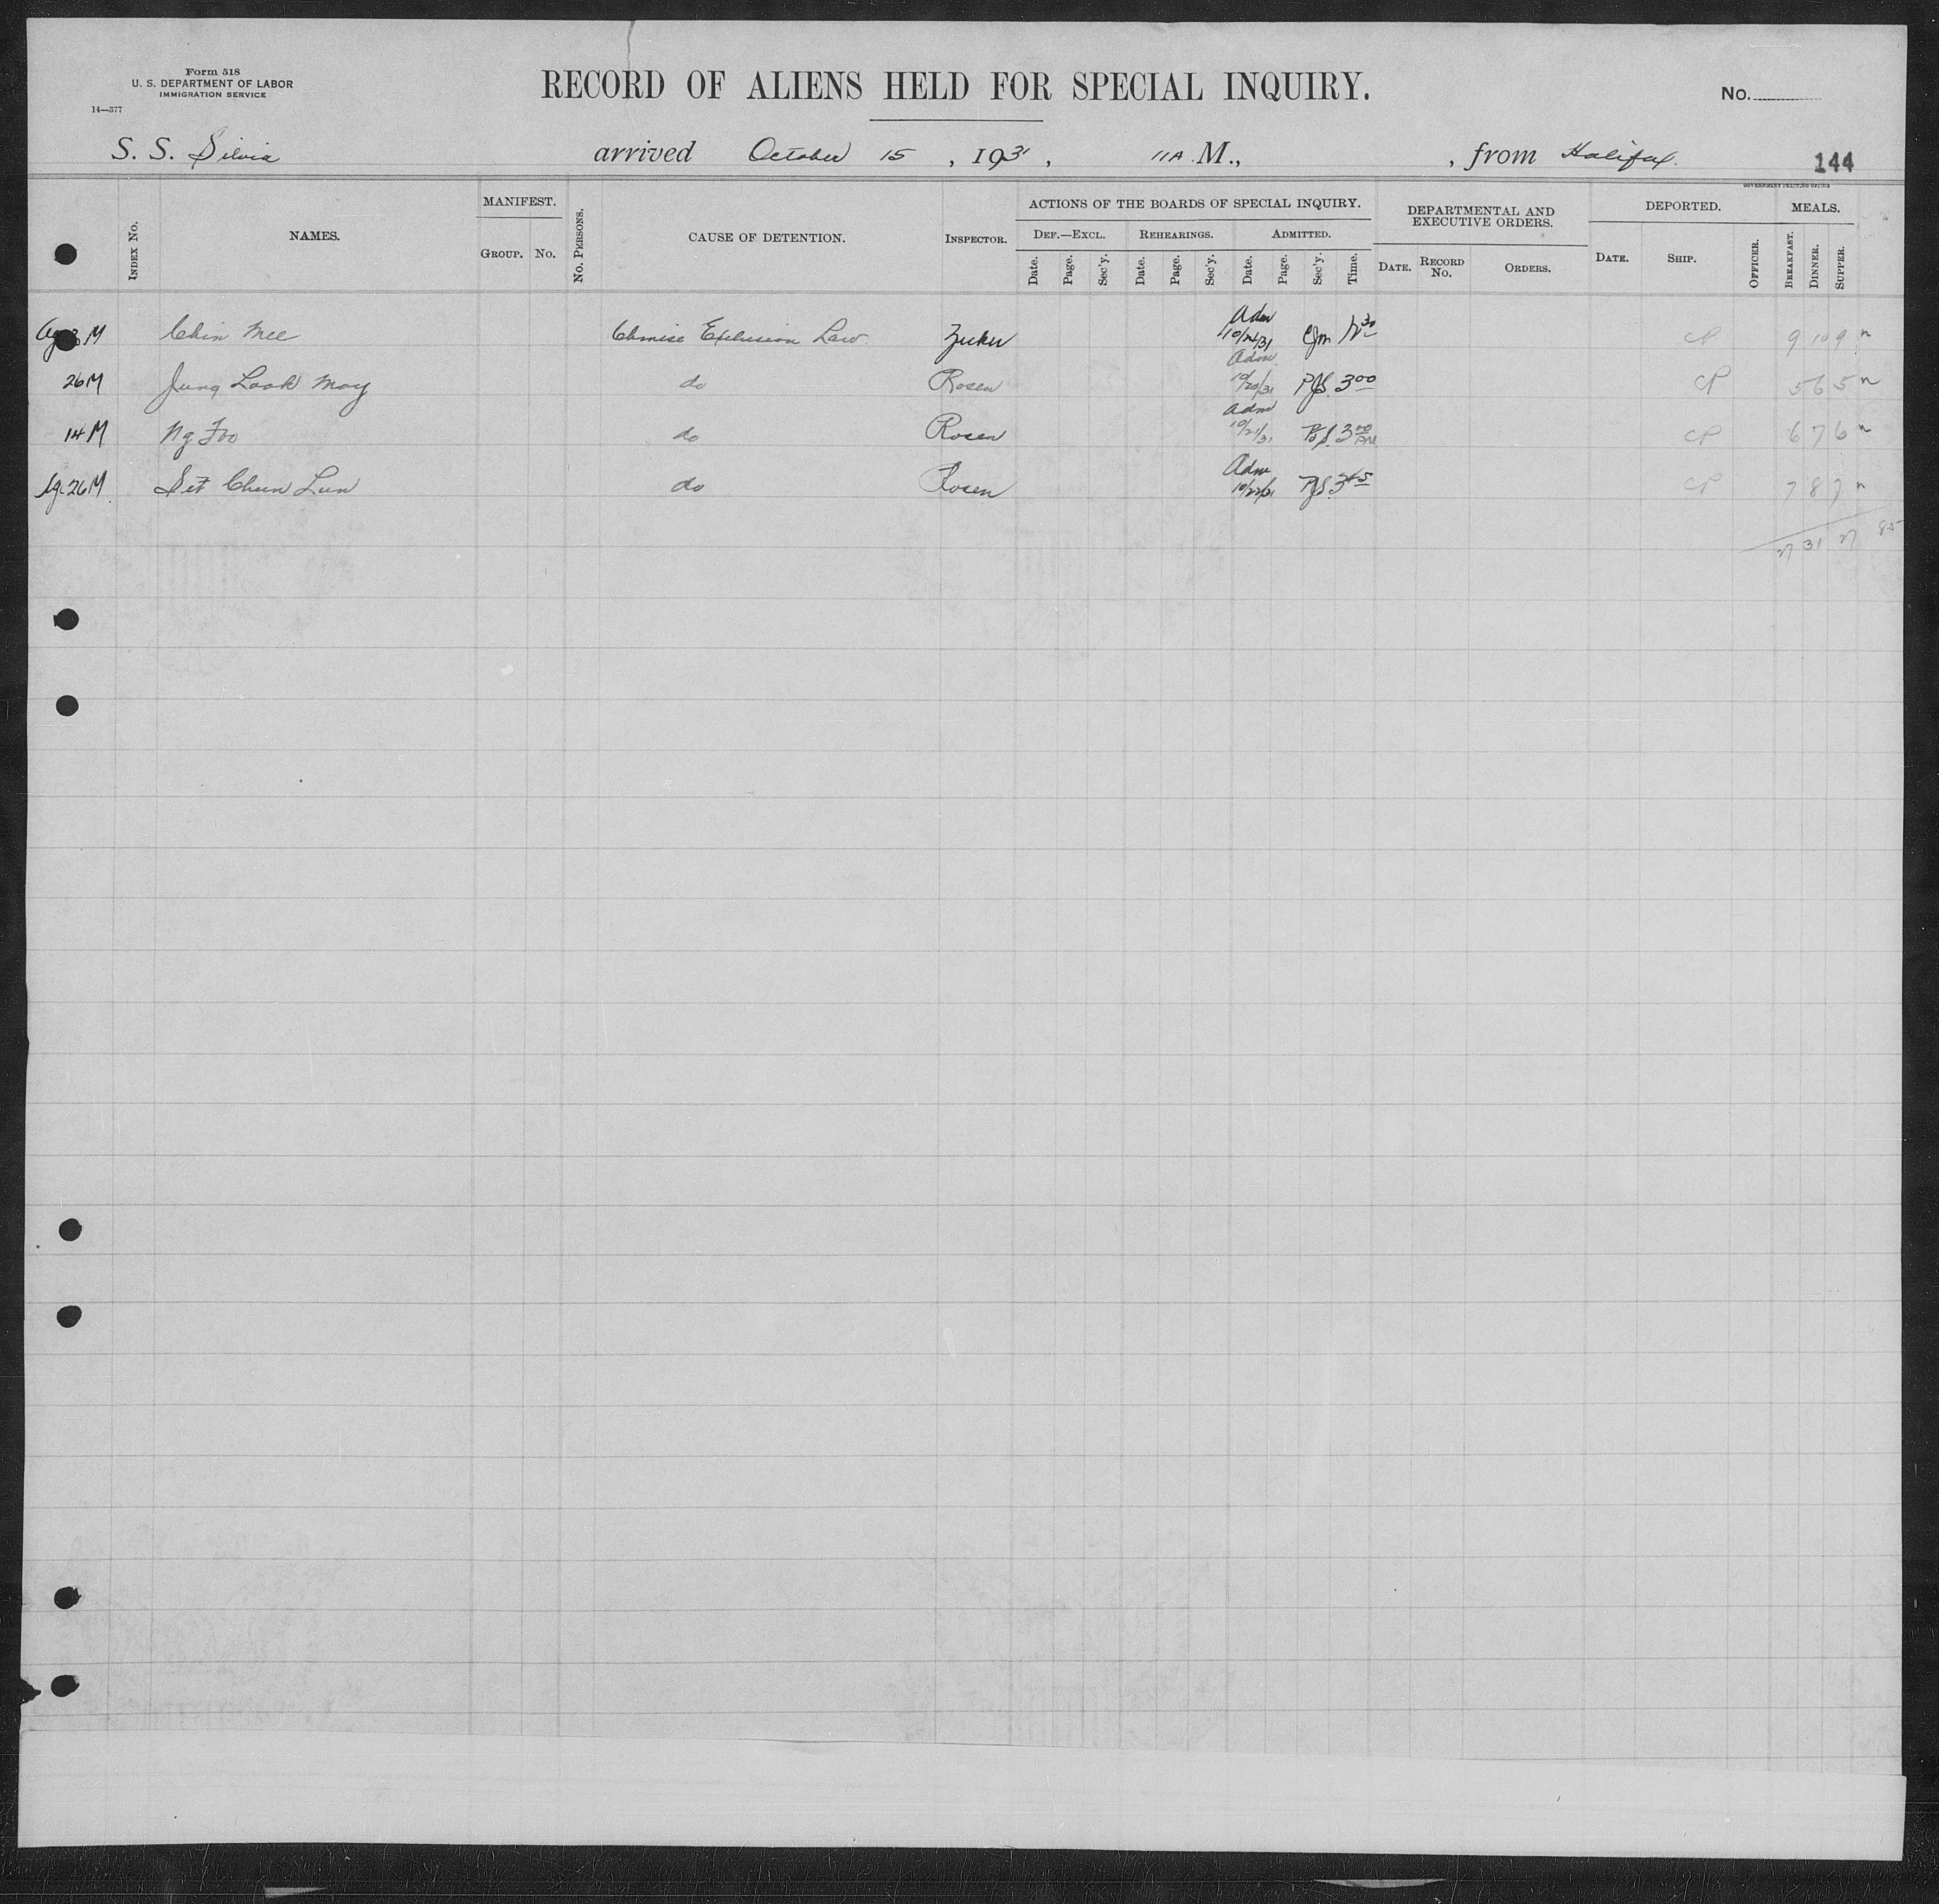 Form 518
U. S. DEPARTMENT OF LABOR
IMMIGRATION SERVICE
14—377
RECORD OF ALIENS HELD FOR SPECIAL INQUIRY.
No.
S. S. Silvia arrived October 15, 1931, 11 A. M., , from Halifax.
144
GOVERNMENT PRINTING OFFICE
INDEX No. NAMES. MANIFEST. GROUP. No. No. PERSONS. CAUSE OF DETENTION. INSPECTOR. ACTIONS OF THE BOARDS OF SPECIAL INQUIRY. DEPARTMENTAL AND EXECUTIVE ORDERS. DEPORTED. MEALS.
DEF.—EXCL. REHEARINGS. ADMITTED.
Date. Page. Sec'y. Date. Page. Sec'y. Date. Page. Sec'y. Time. DATE. RECORD No. ORDERS. DATE. SHIP. OFFICER. BREAKFAST. DINNER. SUPPER.
M Chin Mee Chinese Exclusion Law Zucker Adm 10/24/31 CJM CP 9 10 9 n
26 M Jung Look Moy do Rosen Adm 10/20/31 PJS. 3 00 CP 5 6 5 n
14 M Ng Foo do Rosen Adm 10/21/31 PJS. 3 00 PM CP 6 7 6 n
26 M Set Chun Lun do Rosen Adm 10/22/31 PJS 3 45 CP 7 8 7 n
27 31 27 85